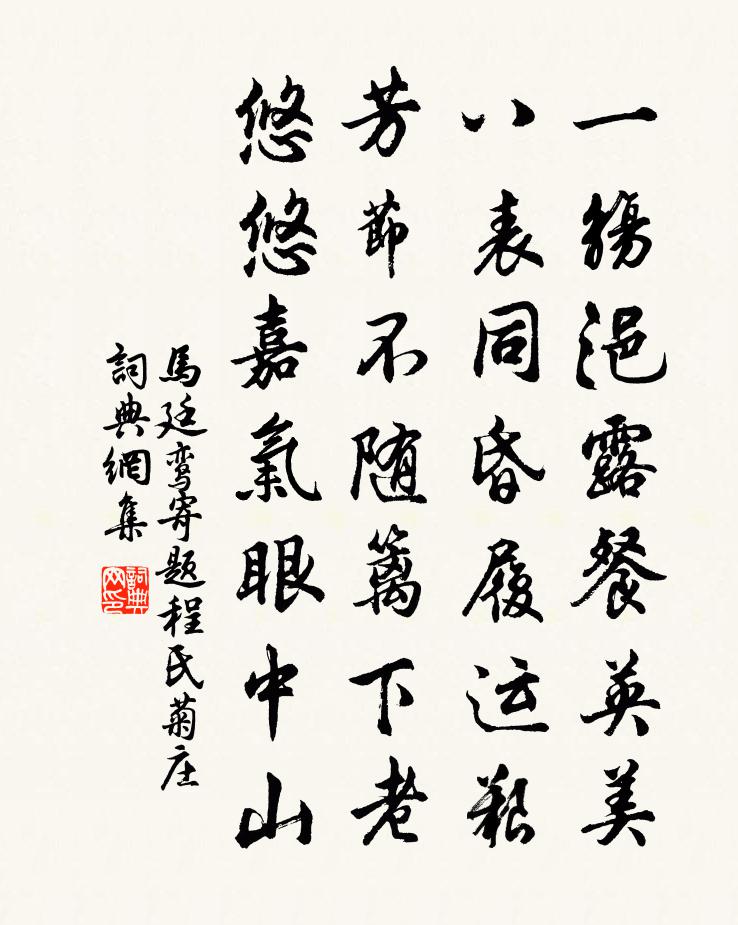 一觴浥露餐英美
八表同昏履运艱
芳節不随篱下老
悠悠嘉氣眼中山
馬廷鸾寄題程氏菊庄
詞典網集
詞典网印